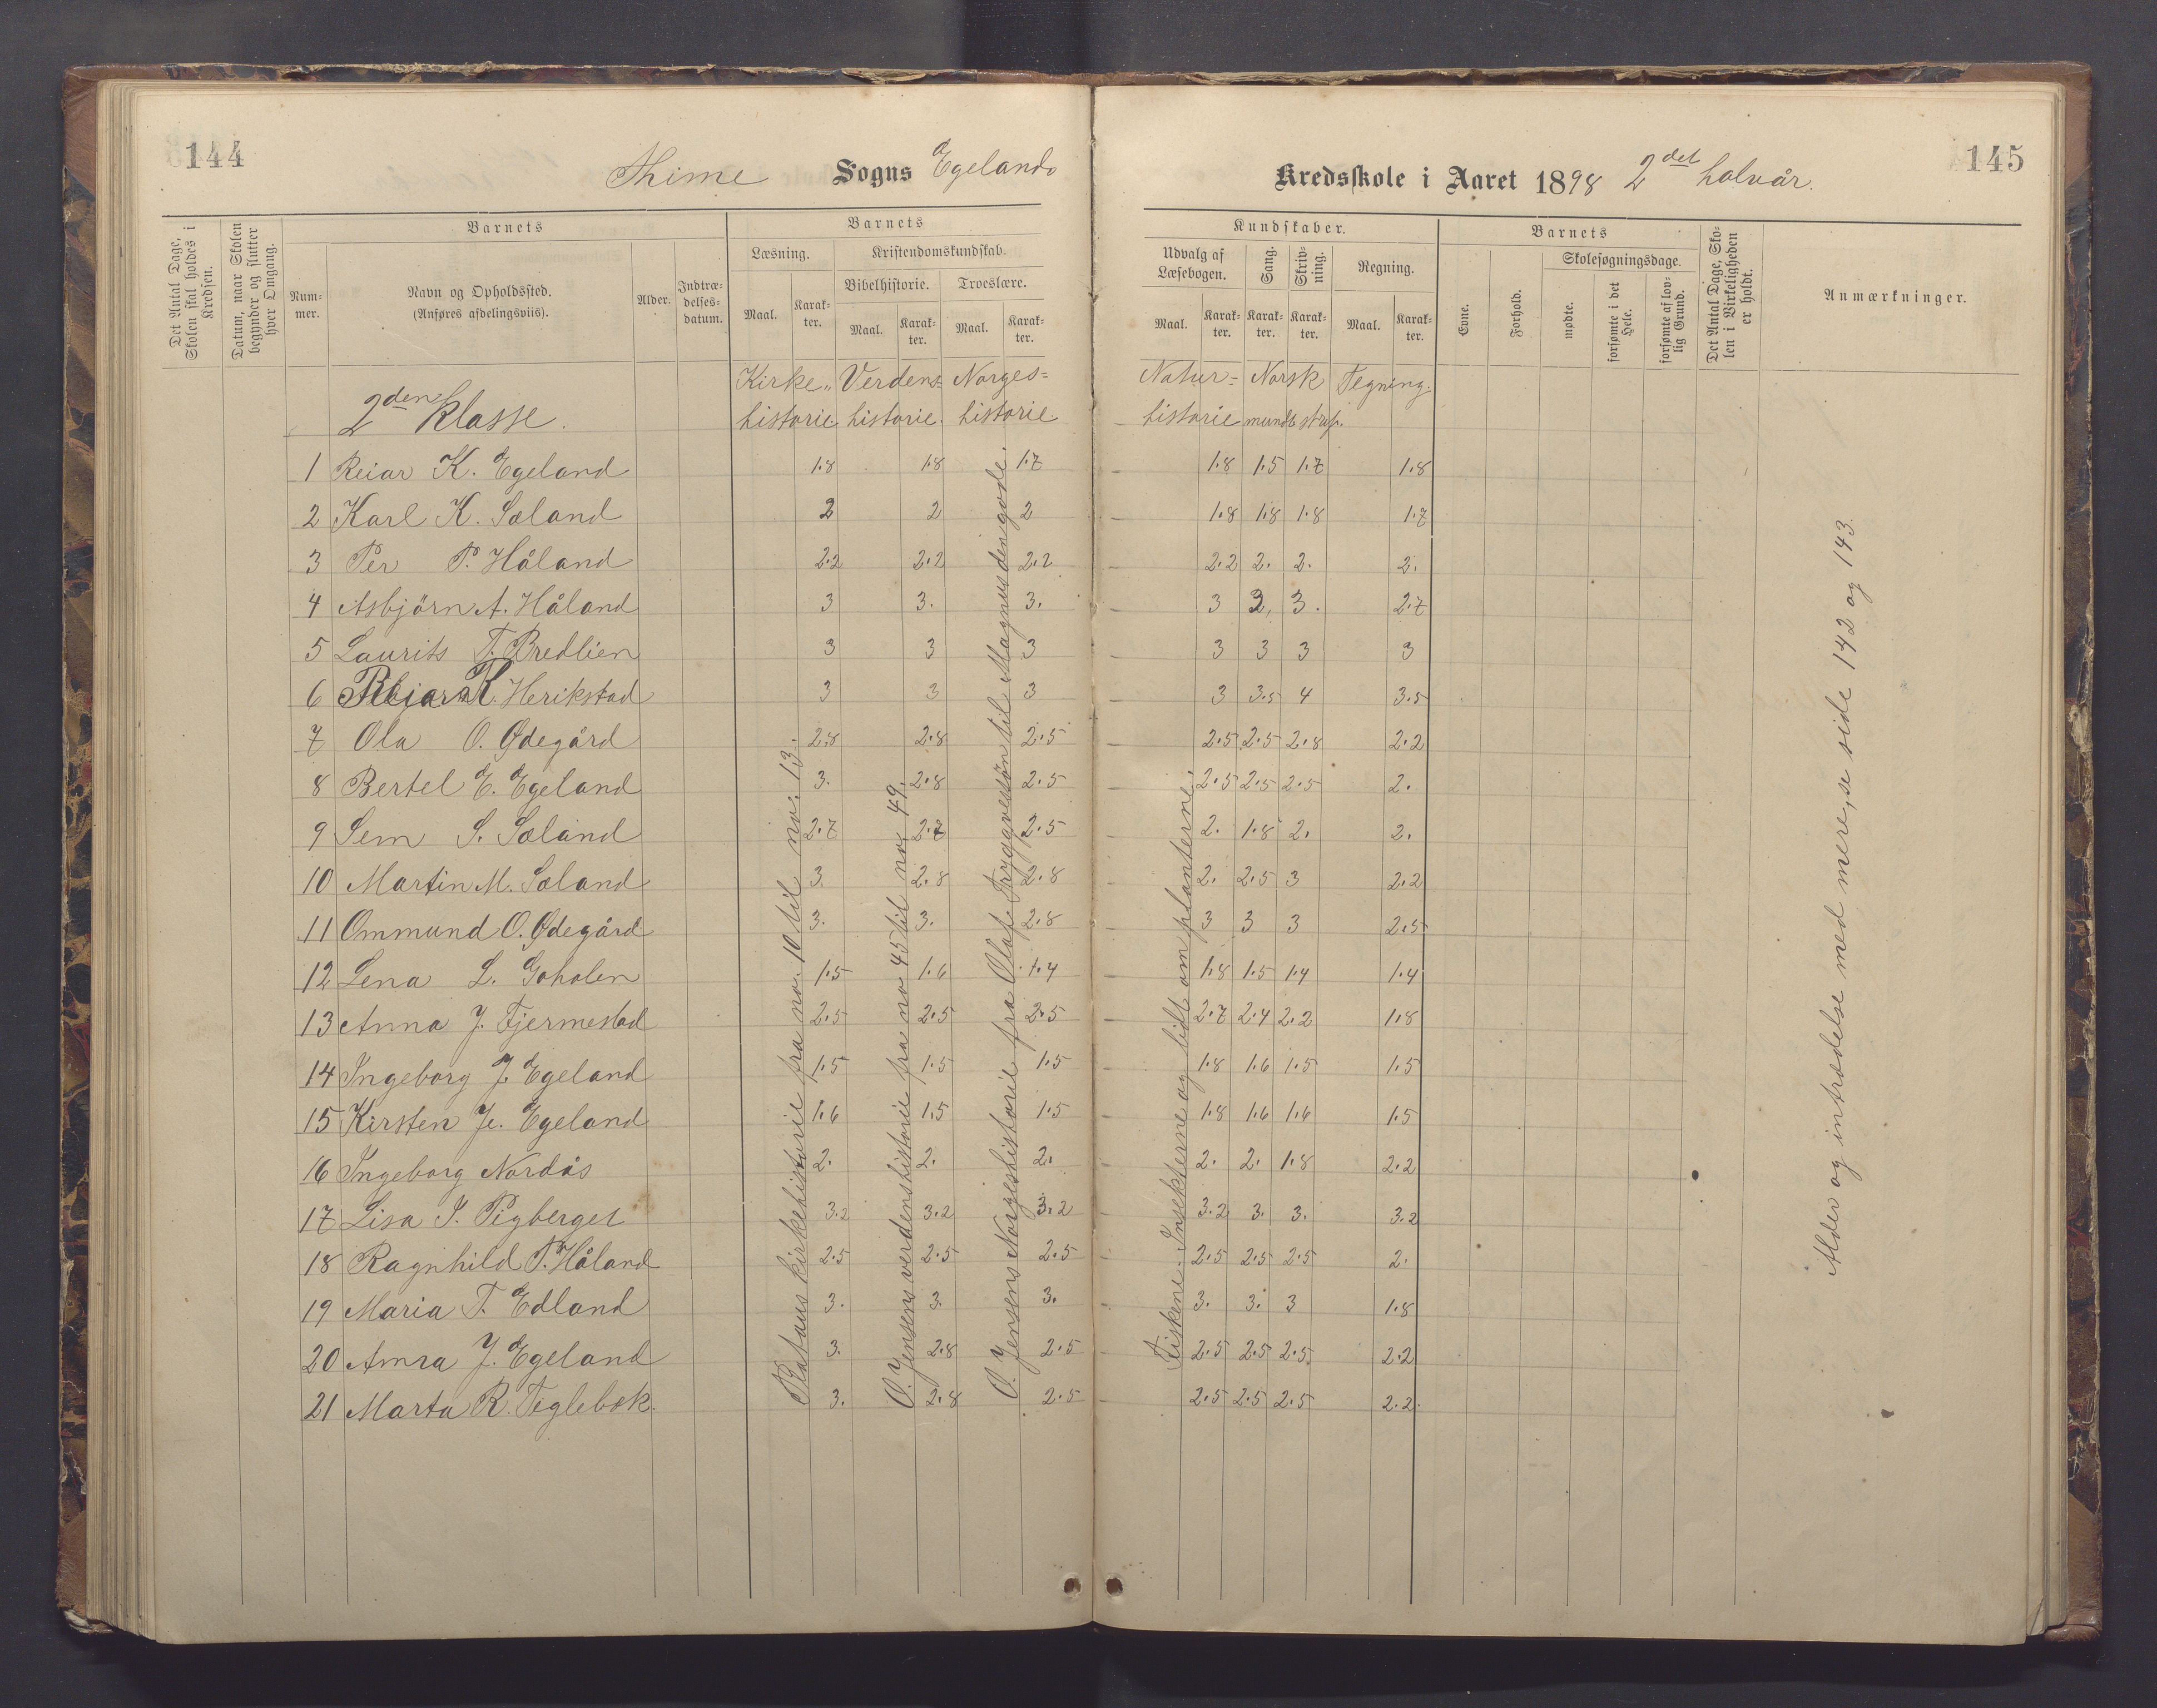 144
Thime Sogns Egelands
Kredsskole i Aaret 1898 2det halvår.
145
Det Antal Dage, Skolen skal holdes i Kredsen.
Datum, naar Skolen begynder og slutter hver Omgang.
Barnets
Num-
mer.
Navn og Opholdssted.
(Anføres afdelingsviis).
Alder.
Indtræ-
delses-
datum.
Barnets
Læsning.
Kristendomskundskab.
Bibelhistorie.
Troeslære.
Maal. Karak-
ter. Maal. Karak-
ter. Maal. Karak-
ter.
Kundskaber.
Udvalg af
Læsebogen.
Sang.
Skriv-
ning.
Regning.
Maal. Karak-
ter. Karak-
ter. Karak-
ter. Maal. Karak-
ter.
Barnets
Evne.
Forhold.
Skolesøgningsdage.
mødte.
forsømte i det
Hele.
forsømte af lov-
lig Grund.
Det Antal Dage, Sko-
len i Virkeligheden
er holdt.
Anmærkninger.
2den Klasse.
Kirke- Verdens- Norges-
historie historie. historie
Natur- Norsk Tegning.
historie mundt. skrif.
1 Reiar K. Egeland 1.8 1.8 1.7 1.8 1.5 1.7 1.8
2 Karl K. Sæland 2 2 2 1.8 1.8 1.8 1.7
3 Per P. Håland 2.2 2.2 2.2 2.2 2. 2. 2.
4 Asbjörn A. Håland 3 3. 3. 3 2, 3. 2.7
5 Laurits T. Bredlien 3 3 3 3 3 3 3
6 K. Herikstad 3 3 3 3 3.5 4 3.5
7 Ola O. Ødegård 2.8 2.8 2.5 2.5 2.5 2.8 2.2
8 Bertel E. Egeland 3. 2.8 2.5 2.5 2.5 2.5 2.
9 Sem S. Sæland 2.7 2.7 2.5 2. 1.8 2. 2.
10 Martin M. Sæland 3. 2.8 2.8 2. 2.5 3 2.2
11 Ommund O. Ødegård 3. 3. 2.8 3 3 3 2.5
12 Lena L. Goholen 1.5 1.6 1.4 1.8 1.5 1.4 1.4
13 Anna J. Fjermestad 2.5 2.5 2.5 2.7 2.4 2.2 1.8
14 Ingeborg J. Egeland 1.5 1.5 1.5 1.8 1.6 1.5 1.5
15 Kirsten Je. Egeland 1.6 1.5 1.5 1.8 1.6 1.6 1.5
16 Ingeborg Nordås 2. 2. 2. 2. 2. 1.8 2.2
17 Lisa I. Pigberget 3.2 3.2 3.2 3.2 3. 3. 3.2
18 Ragnhild P. Håland 2.5 2.5 2.5 2.5 2.5 2.5 2.
19 Maria T. Edland 3. 3. 3. 3. 3. 3 1.8
20 Anna J. Egeland 3. 2.8 2.5 2.5 2.5 2.5 2.2
21 Marta R. Teglebæk. 3. 2.8 2.5 2.5 2.5 2.5 2.2
kirkehistorie fra no. 10 til no. 13.
O. Jensens verdenshistorie fra no 45 til no. 49.
O. Jensens Norgeshistorie fra Olaf Tryggvesön til Magnus den gode.
Fiskene. Insekterne og lidt om planterne.
Alder og intrædelse med mere, se side 142 og 143.